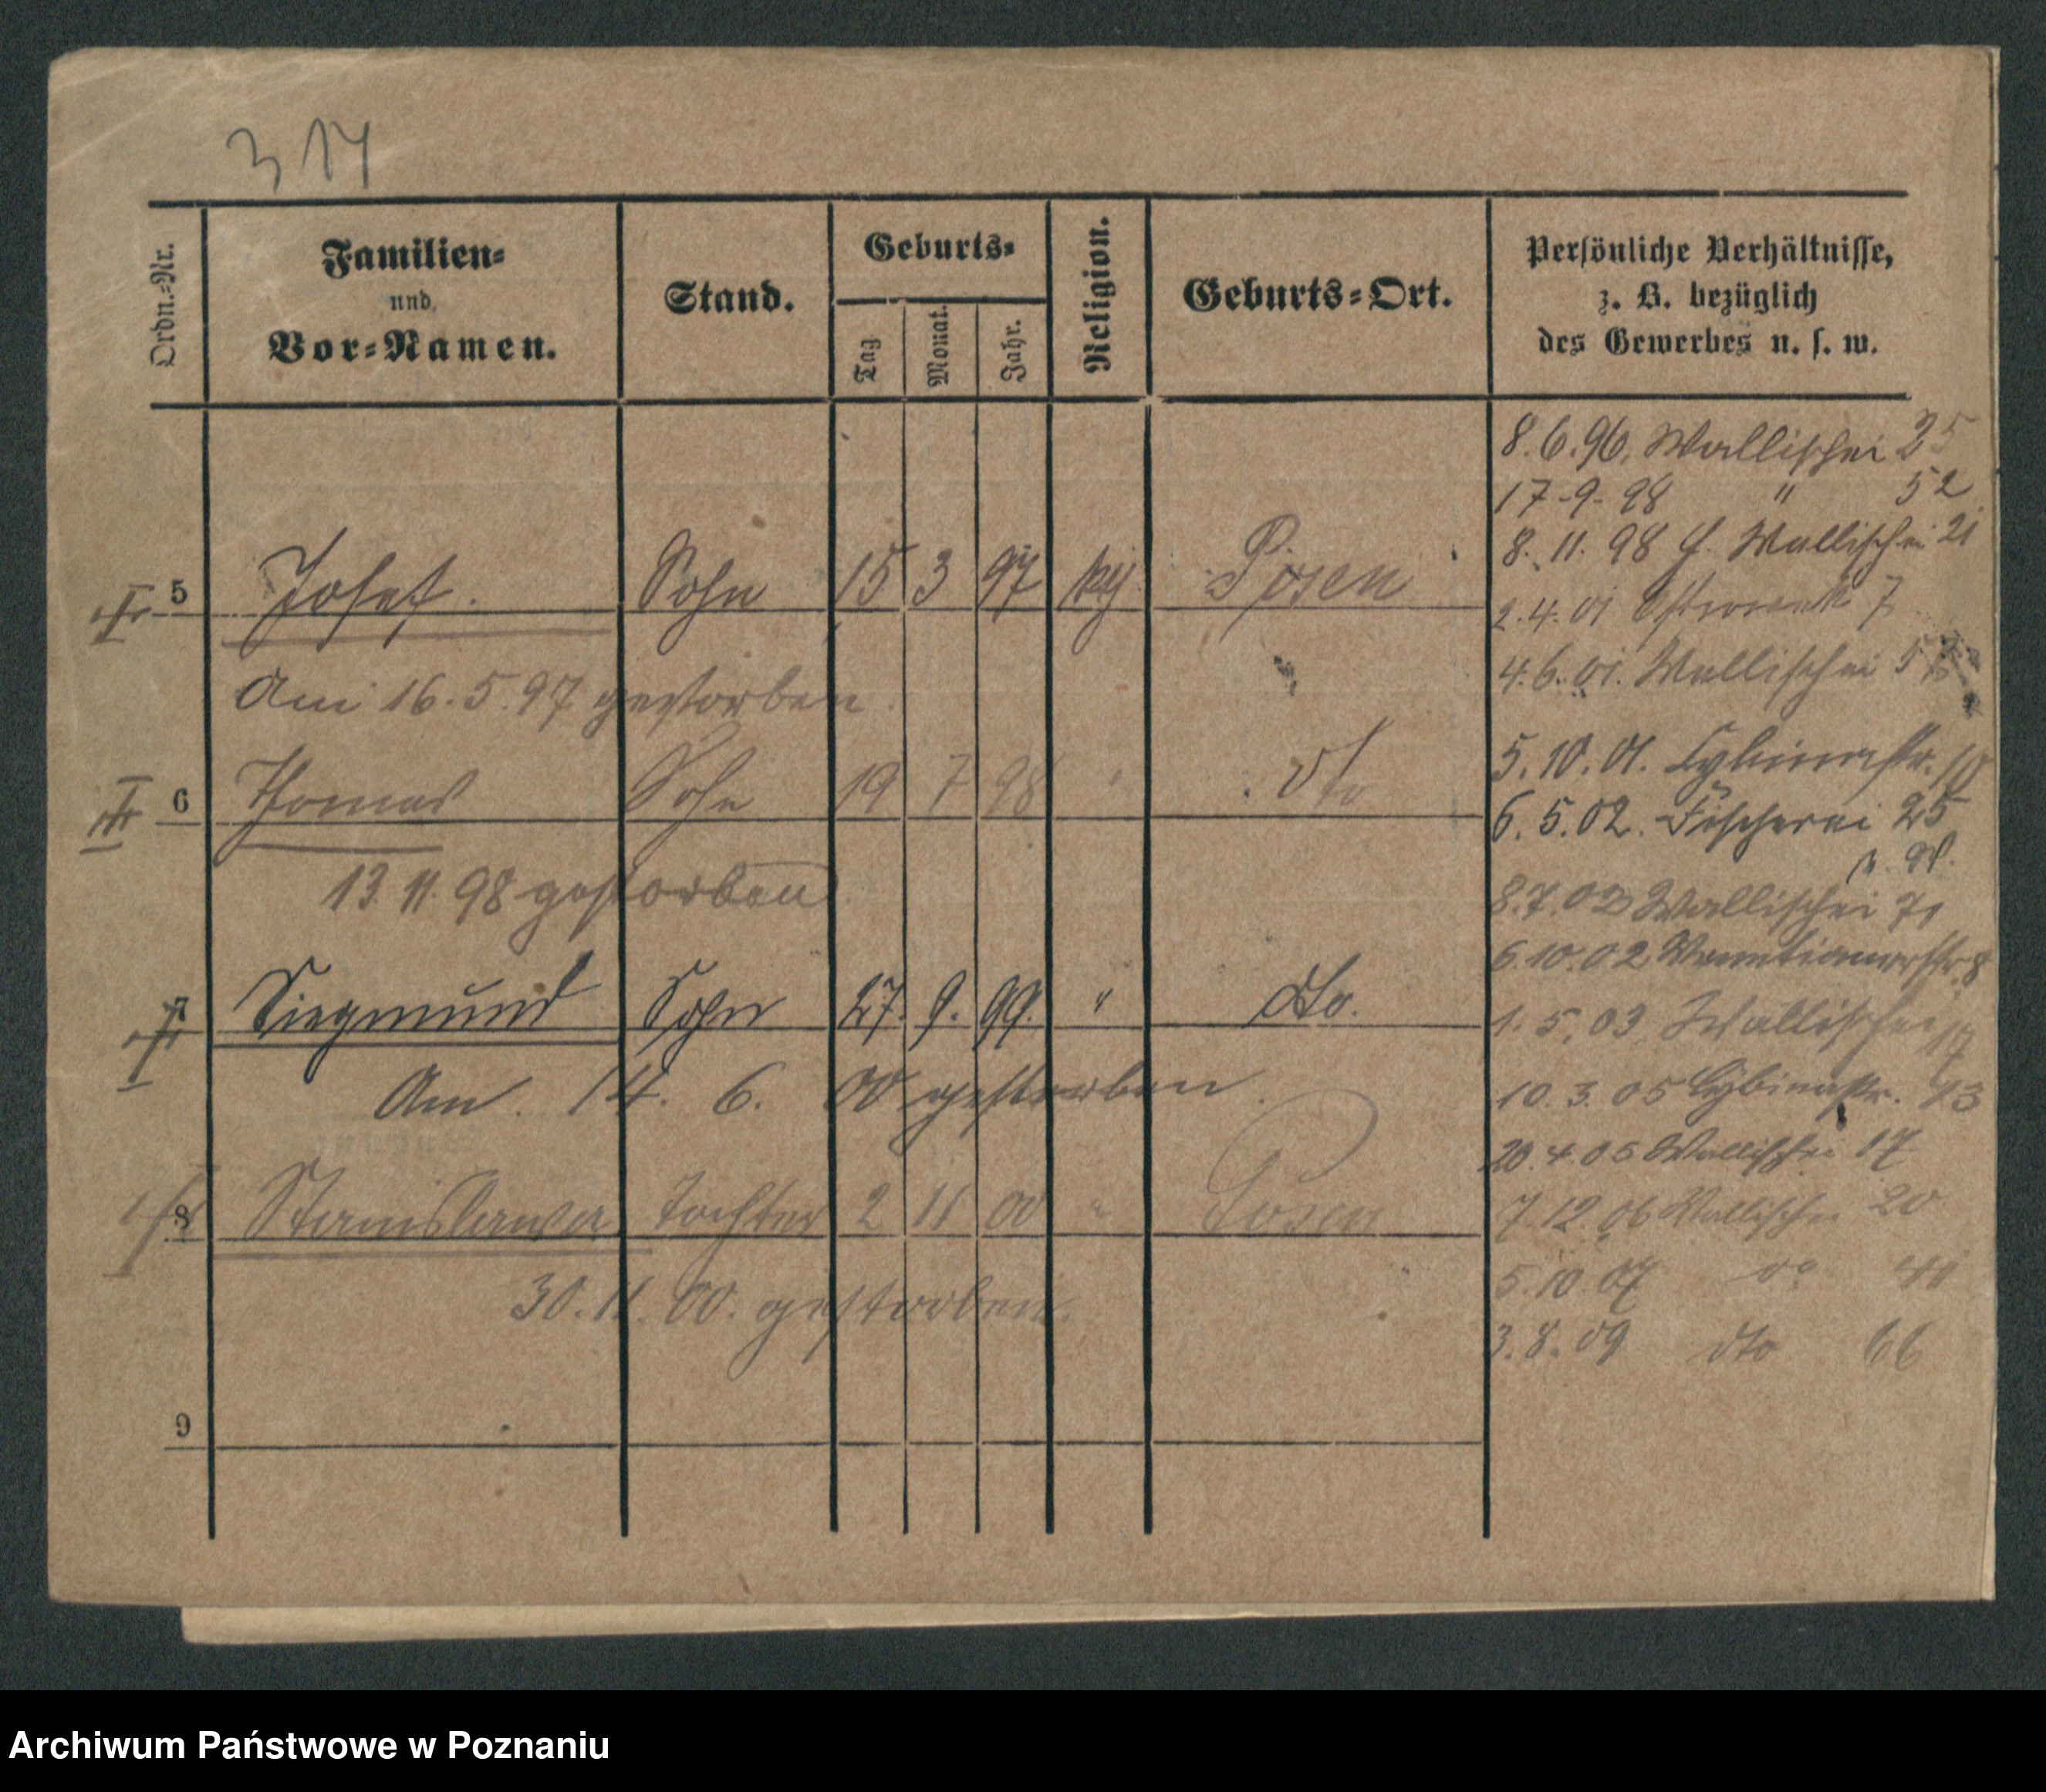 3 14
Ordn.-Nr.
Familien-
und
Vor-Namen.
Stand.
Geburts-
Tag
Monat.
Jahr.
Religion.
Geburts-Ort.
Persönliche Verhältnisse,
z. B. bezüglich
des Gewerbes u. s. w.
8. 6. 96. Wallischei 25
17-9-98 " 52
8. 11. 98 Wallischei 21
5 Josef. Sohn 15 3 97 Posen
2. 4. 01 Ostrowek 7
4. 6. 01. Wallischei
Am 16. 5. 97 gestorben
5. 10. 01. Cybinastr.
6 Thomas Sohn 19 7 98 " dto
6. 5. 02. Fischerei 25
13. 11. 98 gestorben
8. 7. 02 Wallischei 71
6. 10. 02 Venetianerstr. 8
7 Siegmund Sohn 27. 9. 99. " dto.
1. 5. 03 Wallischei 17
Am. 14. 6. 00 gestorben.
10. 3. 05 Cybinastr. 13
20. 4. 05 Wallischei 17
8 Stanislawa Tochter 2 11 00 " Posen
7. 12. 06 Wallischei 20
30. 11. 00. gestorben.
5. 10. 07 do 41
3. 8. 09 dto 66
9
Archiwum Państwowe w Poznaniu